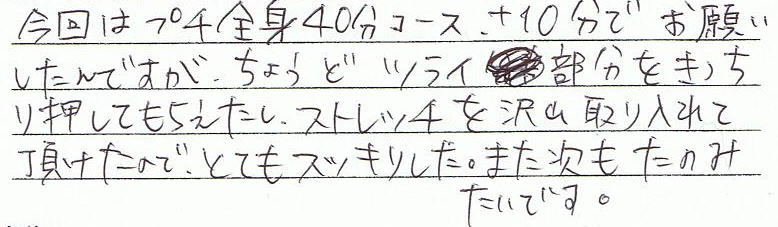 今回はプチ全身40分コース、+10分でお願い
したんですが、ちょうどツライ部分をきっち
り押してもらえたし、ストレッチを沢山取り入れて
頂けたので、とてもスッキリした。また次もたのみ
たいです。